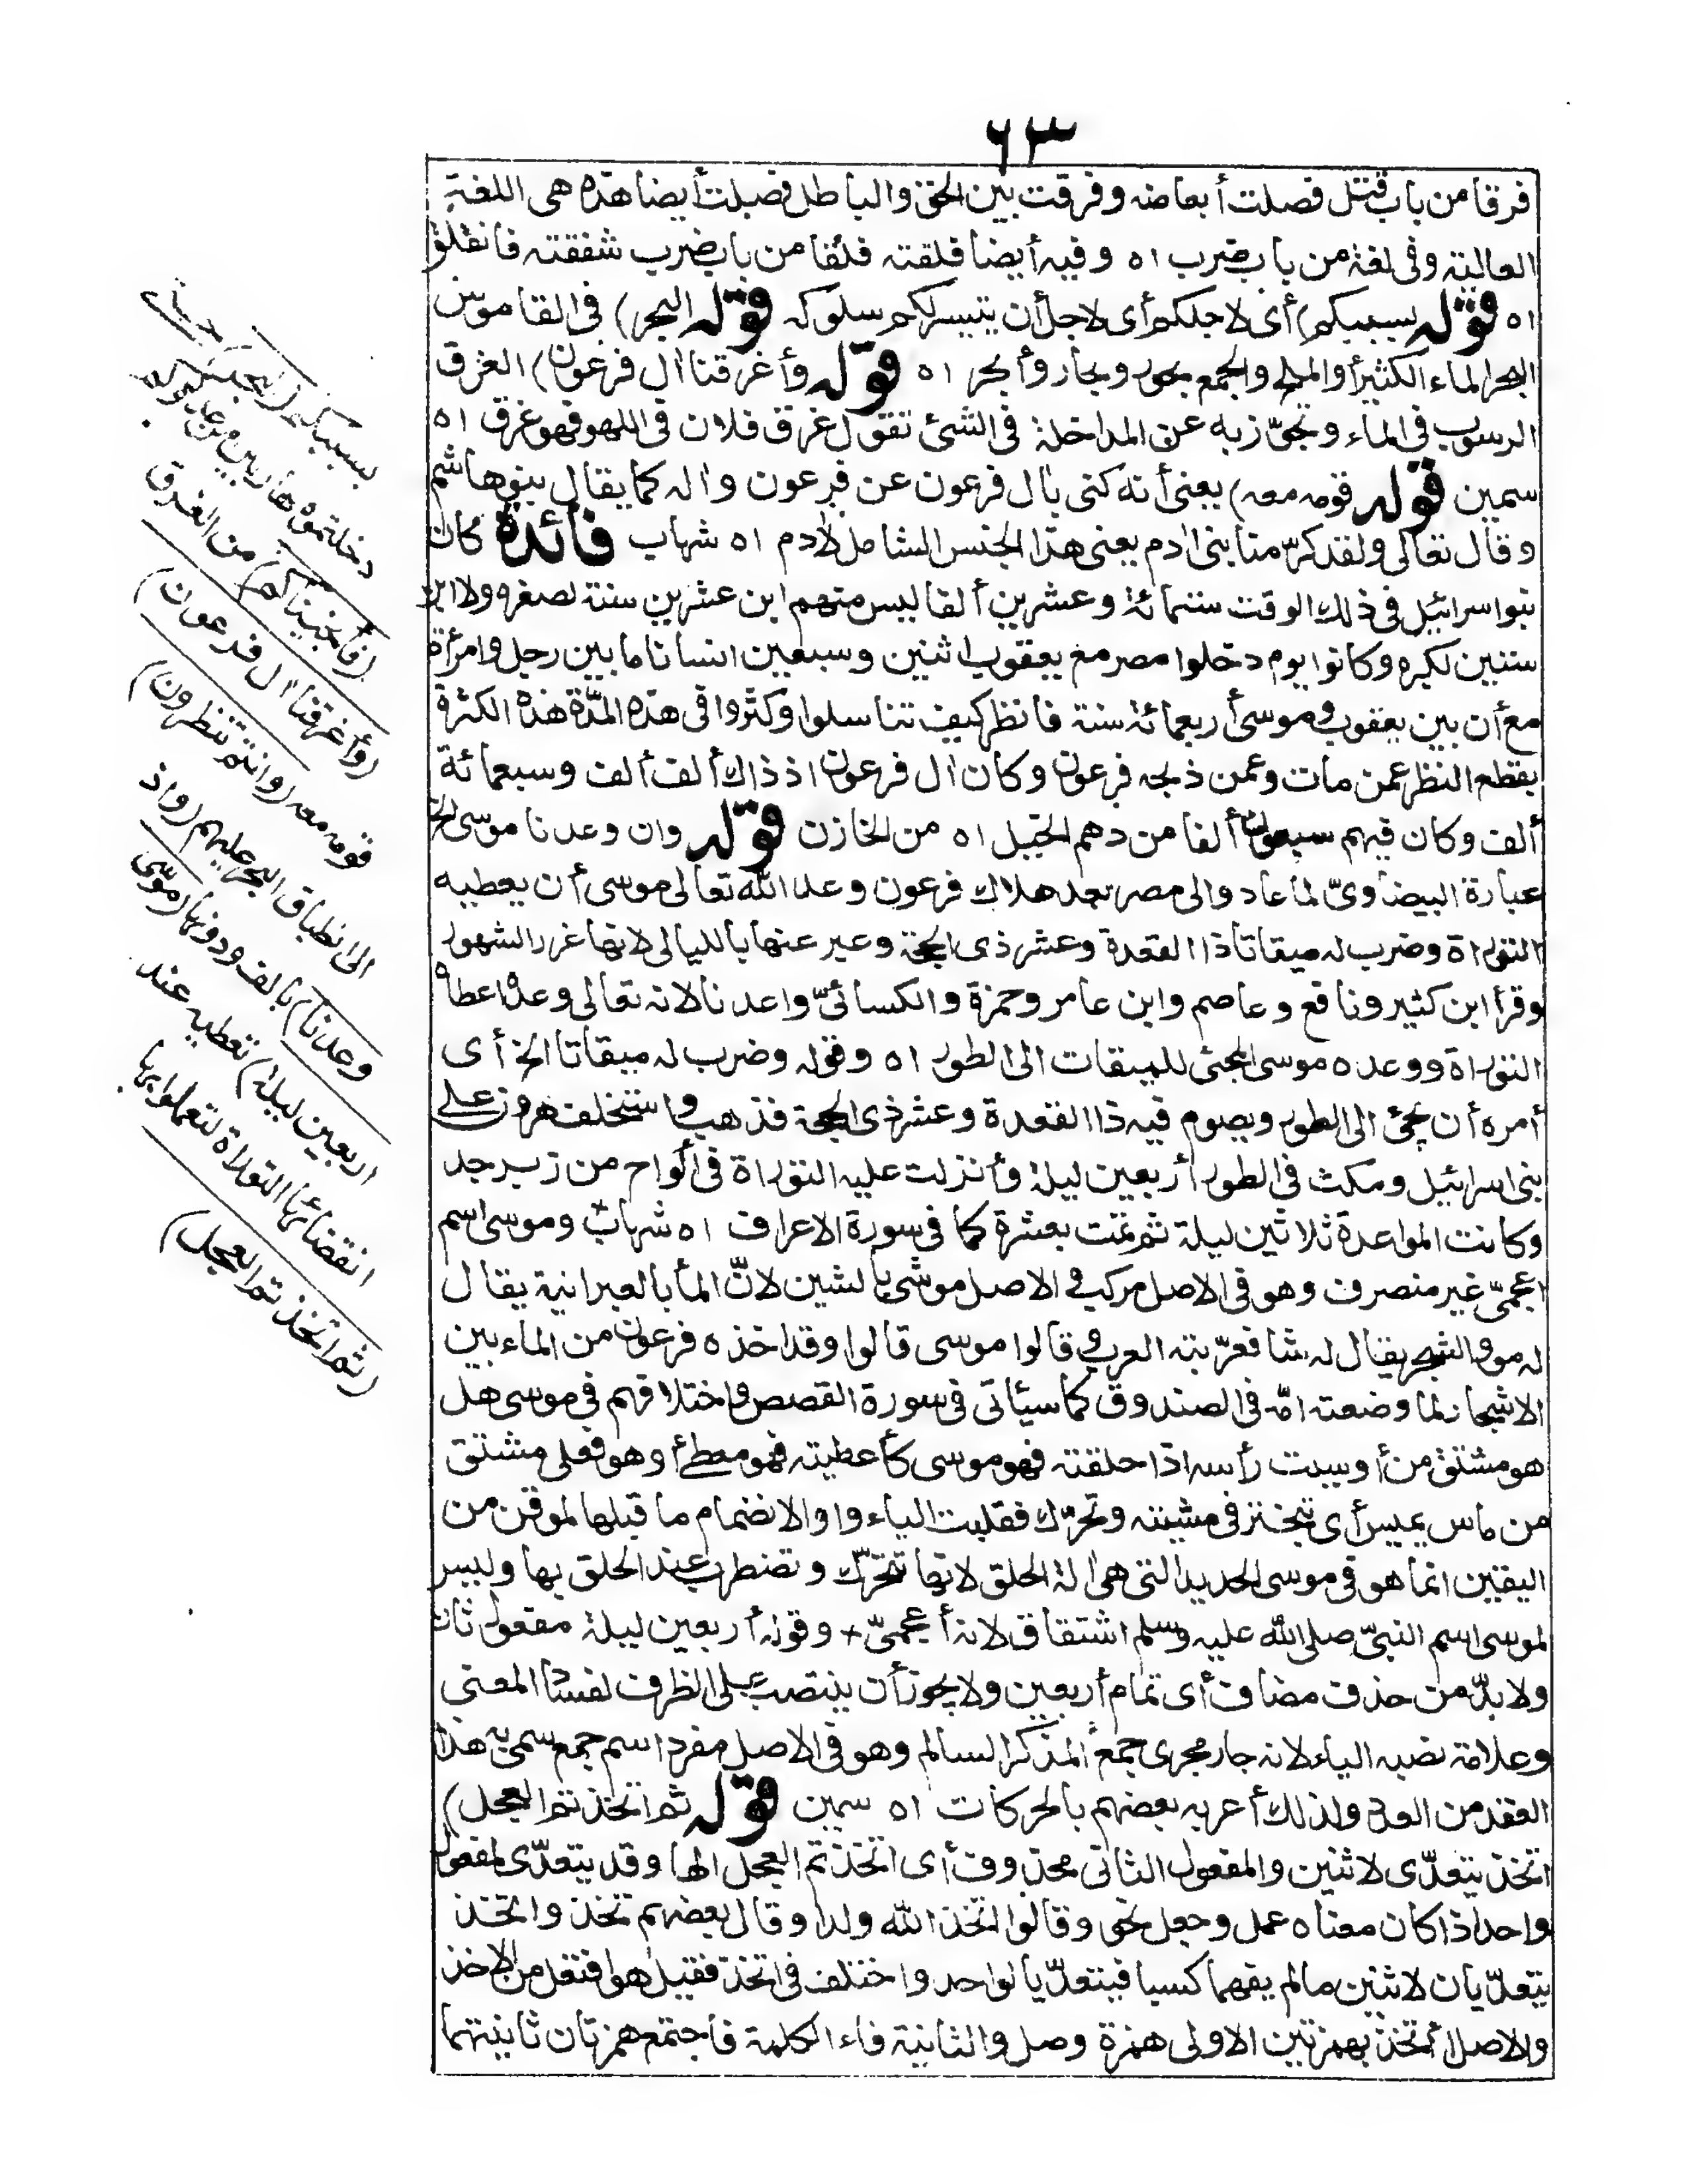 ٦٣
فرقا من باب قتل فصلت أبعاضه وفرقت بين الحق والباطل فصلت أيضا هذه هى اللغة
العالية وفى لغة من باب ضرب اه وفيه أيضا فلقته فلقا من باب ضرب شققته فانفلق
اه قوله بسببكم) أى لاجلكم أى لاجل أن يتيسر لكم سلوكه قوله البحر) فى القاموس
البحر الماء الكثير أو الملح والجمع بحور وبحار وأبحر اه قوله وأغرقنا اٰل فرعون) الغرق
الرسوب فى الماء وتجوّز به عن المداخلة فى الشئ تقول غرق فلان فى اللهو فهو غرق اه
سمين قوله قومه معه) يعنى أنه كنى باٰل فرعون عن فرعون واٰله كما يقال بنو هاشم
وقال تعالى ولقد كرّمنا بنى اٰدم يعنى هذا الجنس الشامل لاٰدم اه شهاب فائدة كان
بنوا سرائيل فى ذلك الوقت ستمائة وعشرين ألفا ليس منهم ابن عشرين سنة لصغره ولا ابن
ستين لكبره وكانوا يوم دخلوا مصر مع يعقوب اثنين وسبعين انسانا ما بين رجل وامرأة
مع أن بين يعقوب وموسى أربعمائة سنة فانظر كيف تناسلوا وكثروا فى هذه المدّة هذه الكثرة
بقطع النظر عمن مات وعمن ذبحه فرعون وكان اٰل فرعون اذ ذاك ألف ألف وسبعمائة
ألف وكان فيهم سبعون ألفا من دهم الخيل اه من الخازن قوله وان وعدنا موسى الخ
عبارة البيضاوىّ لما عادوا لى مصر بعد هلاك فرعون وعد الله تعالى موسى أن يعطيه
التوراة وضرب له ميقاتا ذا القعدة وعشر ذى الحجة وعبر عنها بالليالى لانها غرر الشهور
وقرأ ابن كثير ونافع وعاصم وابن عامر وحمزة والكسائىّ واعدنا لانه تعالى وعده اعطاه
التوراة ووعده موسى المجئ للميقات الى الطور اه وقوله وضرب له ميقاتا الخ أى
أمره أن يجئ الى الطور ويصوم فيه ذا القعدة وعشر ذى الحجة فذهب واستخلف هرون على
بنى اسرائيل ومكث فى الطور أربعين ليلة وأنزلت عليه التوراة فى ألواح من زبرجد
وكانت المواعدة ثلاثين ليلة ثم تمت بعشرة كما فى سورة الاعراف اه شهاب وموسى اسم
اعجمىّ غير منصرف وهو فى الاصل مركب و الاصل موشى بالشين لانّ الماأ بالعبرانية يقال
له مو والشجر يقال له شا فعرّبته العرب وقالوا موسى قالوا وقد اخذه فرعون من الماء بين
الاشجار لما وضعته امّه فى الصندوق كما سيأتى فى سورة القصص واختلافهم فى موسى هل
هو مشتق من أوسيت رأسه اذا حلقته فهو موسى كأعطيته فهو معطى أو هو فعلى مشتق
من ماس يميس أى تبختر فى مشيته وتحرّك فقلبت الياء واوا لانضمام ما قبلها لموقن من
اليقين انما هو فى موسى الحديد التى هى اٰلة الحلق لانها تتحرّك وتضطرب عند الحلق بها وليس
لموسى اسم النبىّ صلى الله عليه وسلم اشتقاق لانه أعجمىّ + وقوله أربعين ليلة مفعول ثان
ولا بدّ من حذف مضاف أى تمام أربعين ولا يجوز أن ينتصب على الظرف لفساد المعنى
وعلامة نصبه الياء لانه جار مجرى جمع المذكر السالم وهو فى الاصل مفرد اسم جمع سمى به هذا
العقد من العدد ولذلك أعربه بعضهم بالحركات اه سمين قوله ثم اتخذتم العجل)
اتخذ يتعدّى لاثنين والمفعول الثانى محذوف أى اتخذتم العجل الها وقد يتعدّى لمفعول
واحد اذا كان معناه عمل وجعل نحو وقالوا اتخذ الله ولدا وقال بعضهم تخذ واتخذ
يتعدّيان لاثنين ما لم يفهما كسبا فيتعدّيا لواحد واختلف فى اتخذ فقيل هو افتعل من الاخذ
والاصل أأتخذ بهمزتين الاولى همزة وصل والثانية فاء الكلمة فاجتمع همزتان ثانيتهما
بسببكم (البحر) حتى
دخلتموه هاربين من عدوكم
(فأنجيناكم) من الغرق
(وأغرقنا اٰل فرعون)
قومه معه (وانتم تنظرون)
الى انطباق البحر عليهم (واذ
وعدنا) بالف ودونها (موسى
اربعين ليلة) نعطيه عند
انقضائها التوراة لتعملوا بها
(ثم اتخذتم العجل)